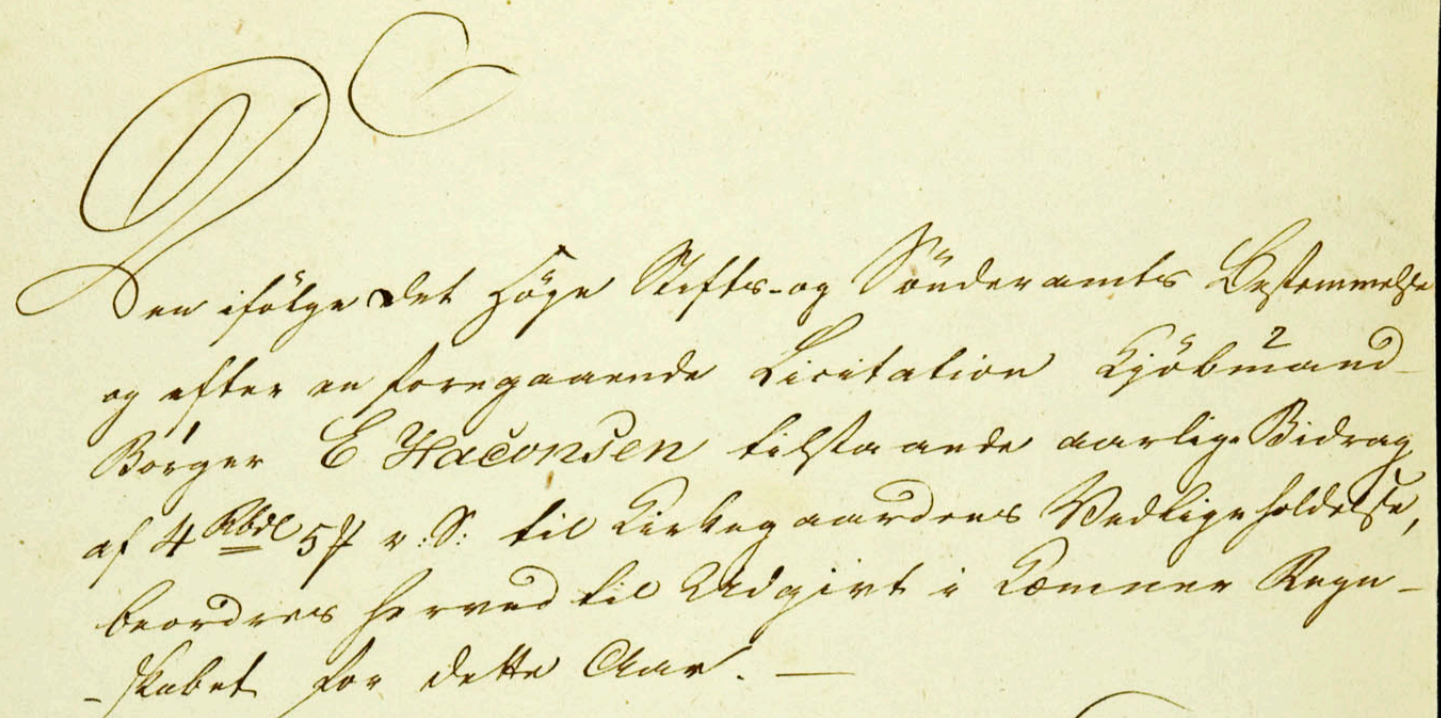 Den ifölge det Höye Stifts- og Sönderamts Bestemmelse
og efter en foregaaende Licitation Kjöbmand
Borger E Haconsen tilstaaende aarlige Bidrag
af 4 Rbdl 5 r: S: til Kirkegaardens Vedligeholdelse,
beordres herved til Udgivt i Kæmner Regn-
-skabet for dette Aar. —